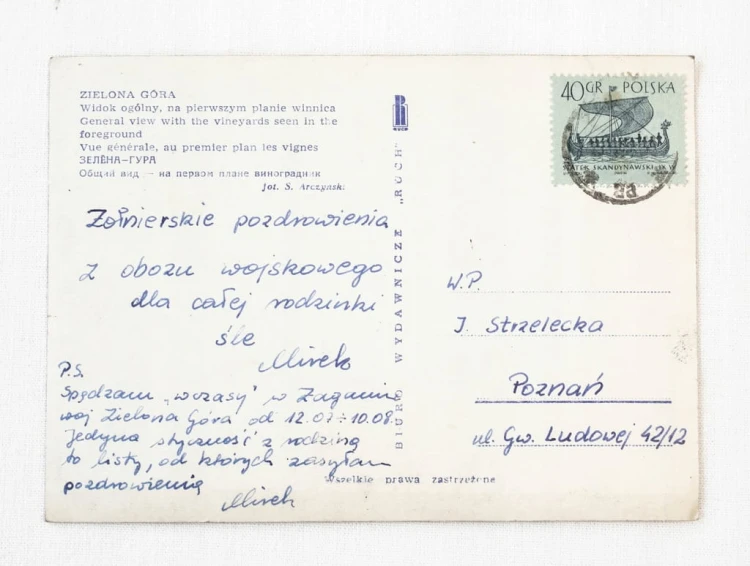 ZIELONA GÓRA
Widok ogólny, na pierwszym planie winnica
General view with the vineyards seen in the
foreground
Vue générale, au premier plan les vignes
ЗЕЛЁНА-ГУРА
Общий вид — на первом плане виноградник
fot. S. Arczyński
Żołnierskie pozdrowienia
z obozu wojskowego
dla całej rodzinki
śle
Mirek
P.S.
Spędzam „wczasy" w Żaganiu
woj Zielona Góra od 12.07÷10.08.
Jedyna styczność z rodziną
to listy, od których zasyłam
pozdrowienia
Mirek
BIURO WYDAWNICZE „RUCH"
RUCH
Wszelkie prawa zastrzeżone
40GR POLSKA
STATEK SKANDYNAWSKI IX W.
W.P.
J. Strzelecka
Poznań
ul. Gw. Ludowej 42/12